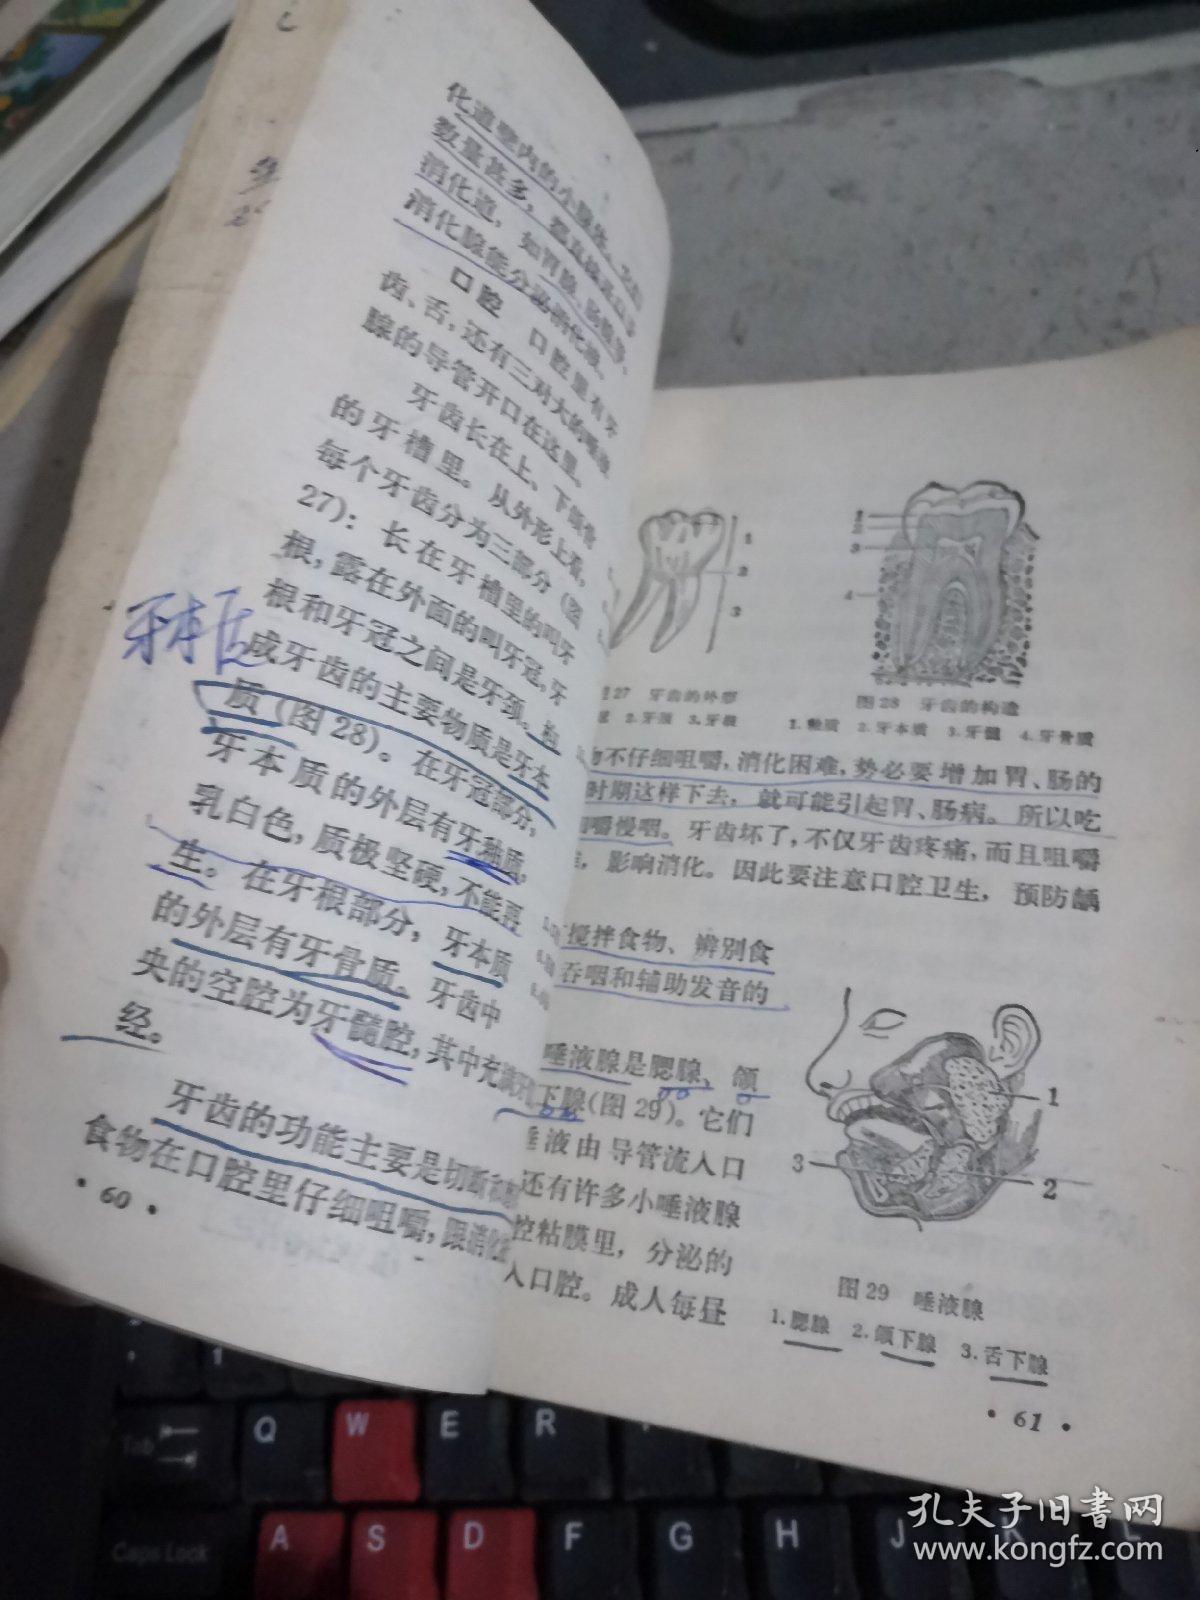 化道壁内的小腺体，
数量甚多，都直接开口于
消化道，如胃腺、肠腺等。
消化腺能分泌消化液。
口腔 口腔里有牙
齿、舌，还有三对大的唾液
腺的导管开口在这里。
牙齿长在上、下颌骨
的牙槽里。从外形上看，
每个牙齿分为三部分（图
27）：长在牙槽里的叫牙
根，露在外面的叫牙冠，牙
根和牙冠之间是牙颈。构
成牙齿的主要物质是牙本
质（图28）。在牙冠部分，
牙本质的外层有牙釉质，
乳白色，质极坚硬，不能再
生。在牙根部分，牙本质
的外层有牙骨质。牙齿中
央的空腔为牙髓腔，其中充满
经。
牙齿的功能主要是切断和
食物在口腔里仔细咀嚼，跟消化
• 60 •
牙本质
1
2
3
27 牙齿的外形
2.牙颈 3.牙根
1
2
3
4
图28 牙齿的构造
1.釉质 2.牙本质 3.牙髓 4.牙骨质
物不仔细咀嚼，消化困难，势必要增加胃、肠的
时期这样下去，就可能引起胃、肠病。所以吃
细嚼慢咽。牙齿坏了，不仅牙齿疼痛，而且咀嚼
，影响消化。因此要注意口腔卫生，预防龋
搅拌食物、辨别食
吞咽和辅助发音的
唾液腺是腮腺、颌
下腺（图29）。它们
唾液由导管流入口
还有许多小唾液腺
腔粘膜里，分泌的
入口腔。成人每昼
1
2
3
图29 唾液腺
1.腮腺 2.颌下腺 3.舌下腺
• 61 •
1
Tab
Q
W
E
R
Caps Lock
A
S
D
F
G
H
J
K
L
孔夫子旧书网
www.kongfz.com